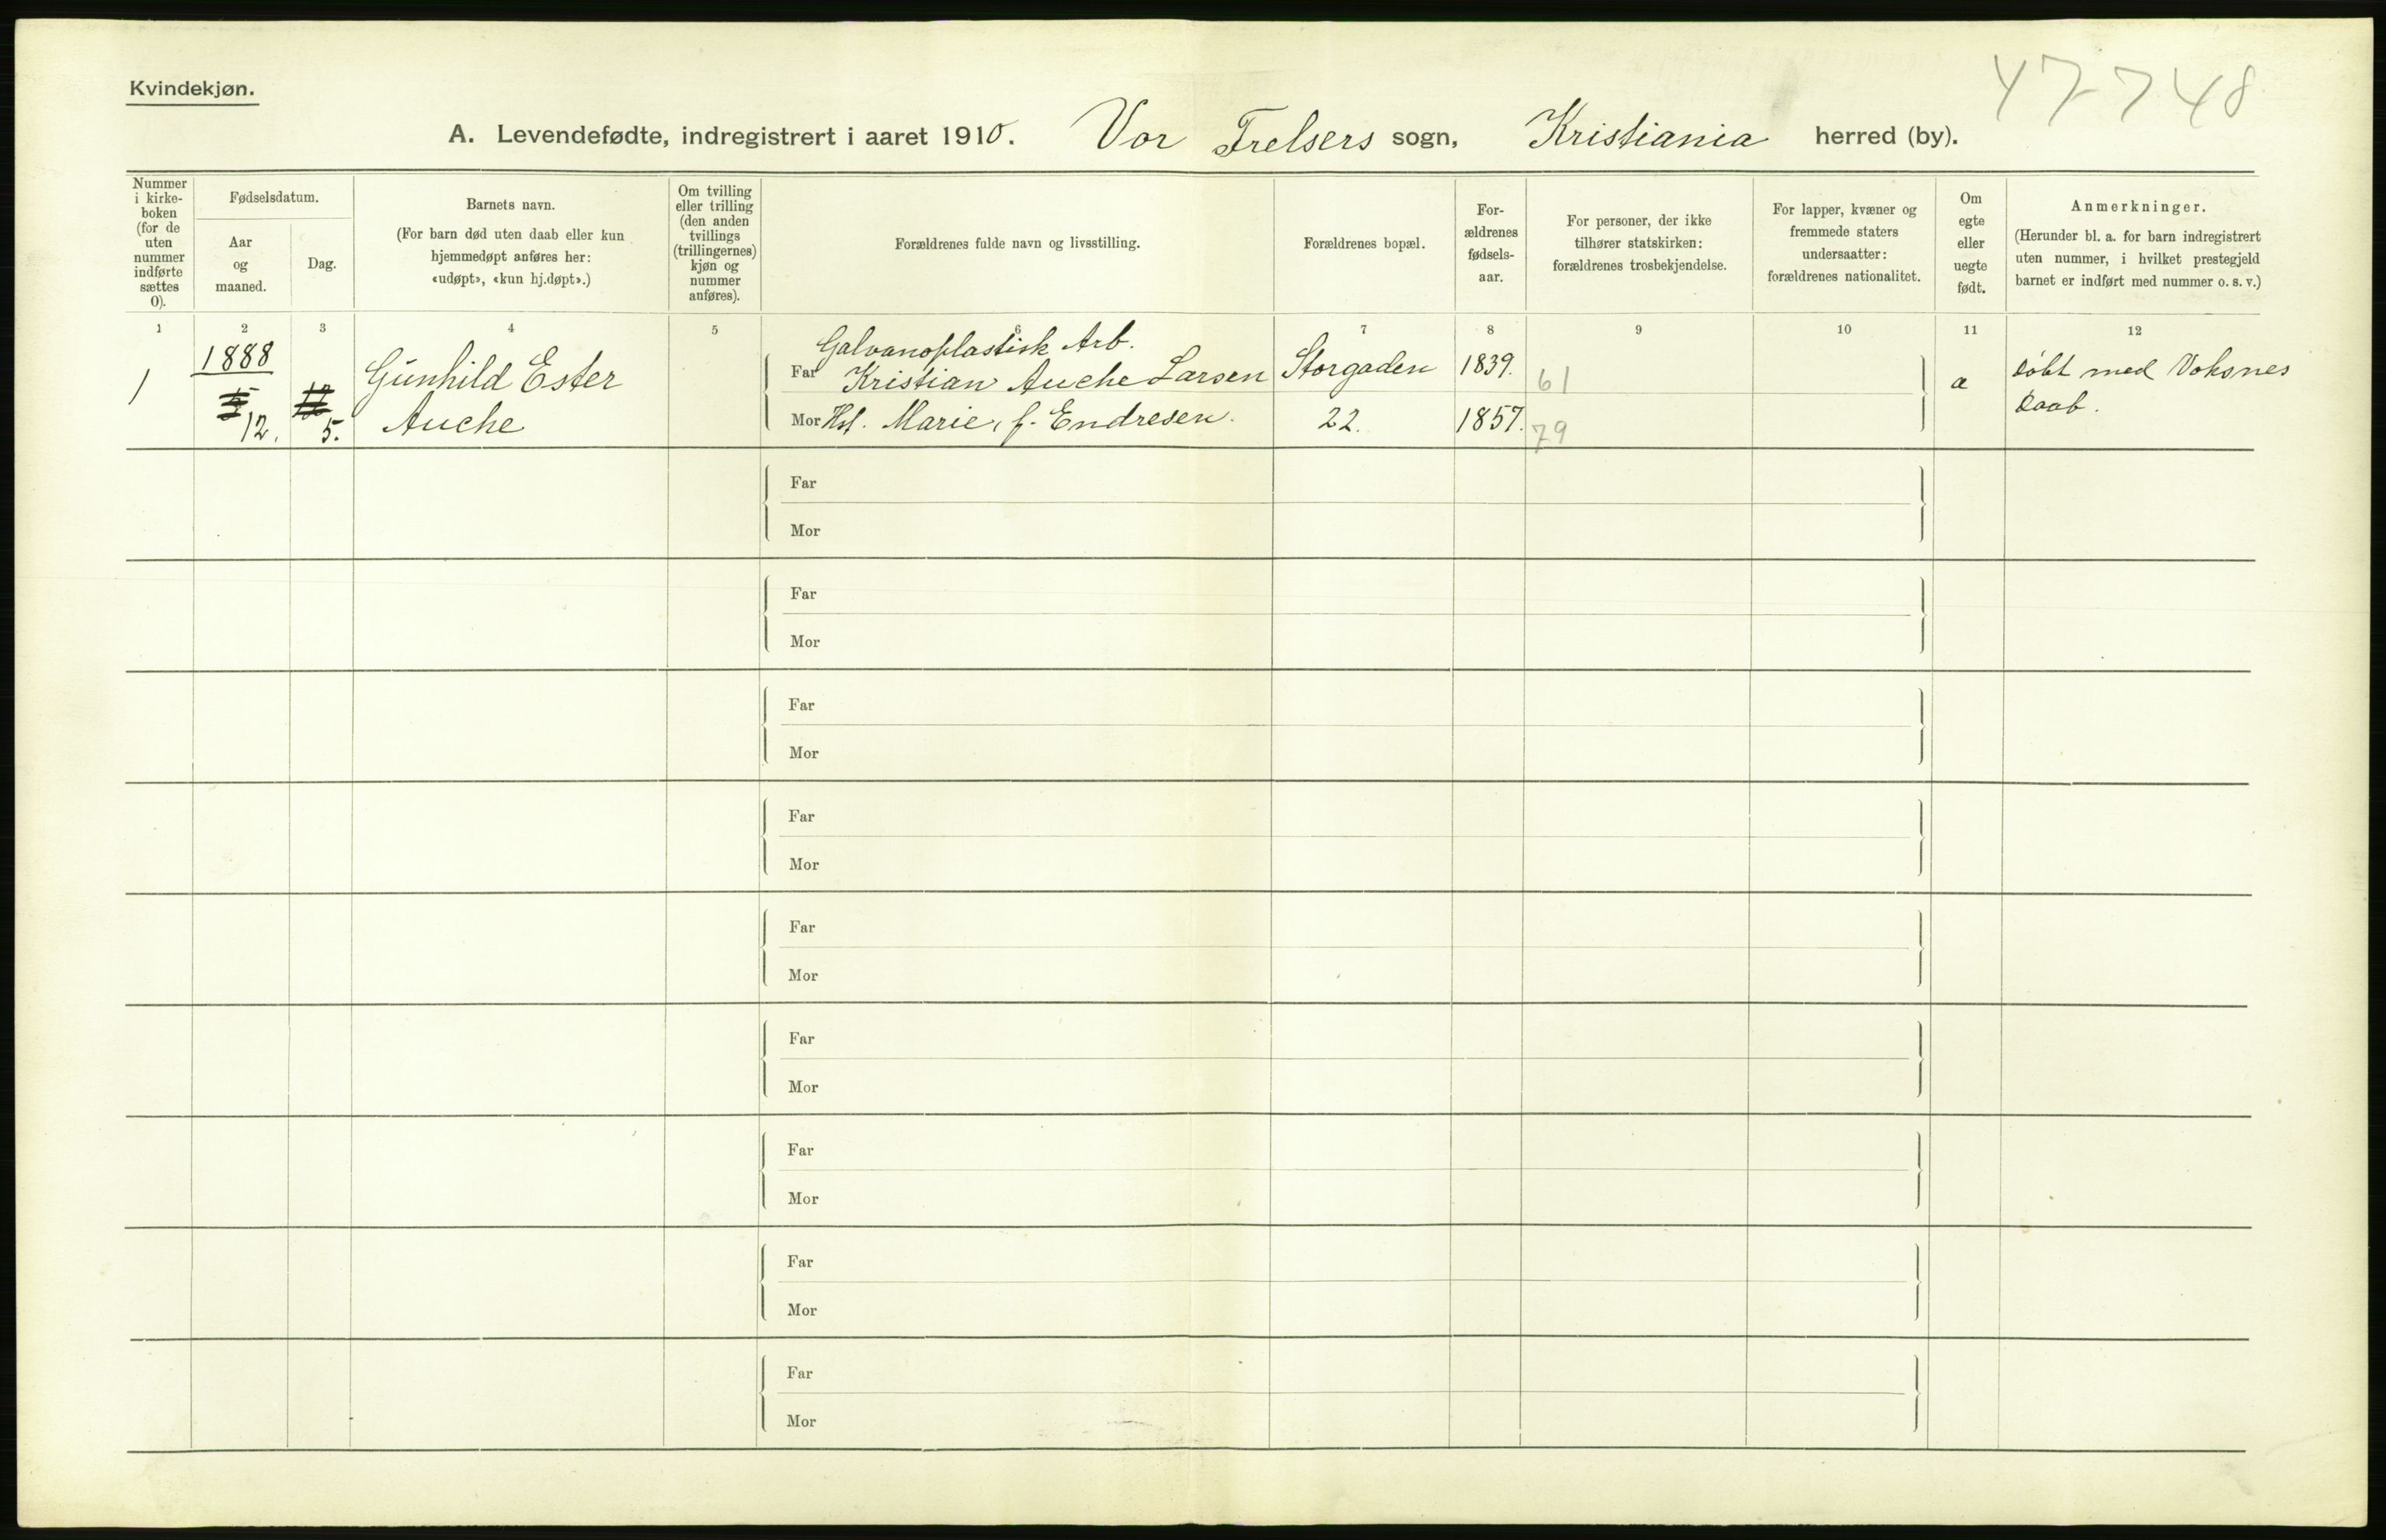 47-748
Kvindekjøn.
A. Levendefødte, indregistrert i aaret 1910. Vor Frelsers sogn, Kristiania herred (by).
Nummer
i kirke-
boken
(for de
uten
nummer
indførte
sættes
0).
Fødselsdatum.
Aar
og
maaned.
Dag.
Barnets navn.
(For barn død uten daab eller kun
hjemmedøpt anføres her:
«udøpt», «kun hj.døpt».)
Om tvilling
eller trilling
(den anden
tvillings
(trillingernes)
kjøn og
nummer
anføres).
Forældrenes fulde navn og livsstilling.
Forældrenes bopæl.
For-
ældrenes
fødsels-
aar.
For personer, der ikke
tilhører statskirken:
forældrenes trosbekjendelse.
For lapper, kvæner og
fremmede staters
undersaatter:
forældrenes nationalitet.
Om
egte
eller
uegte
født.
Anmerkninger.
(Herunder bl. a. for barn indregistrert
uten nummer, i hvilket prestegjeld
barnet er indført med nummer o. s. v.)
1 2 3 4 5 6 7 8 9 10 11 12
1
1888
12.
5.
Gunhild Ester
Auche
Galvanoplastisk Arb.
Far Kristian Auche Larsen
Mor Hst. Marie, f. Endresen.
Storgaden
22.
1839.
1857.
61
79
a
døbt med Voksnes
daab.
Far
Mor
Far
Mor
Far
Mor
Far
Mor
Far
Mor
Far
Mor
Far
Mor
Far
Mor
Far
Mor